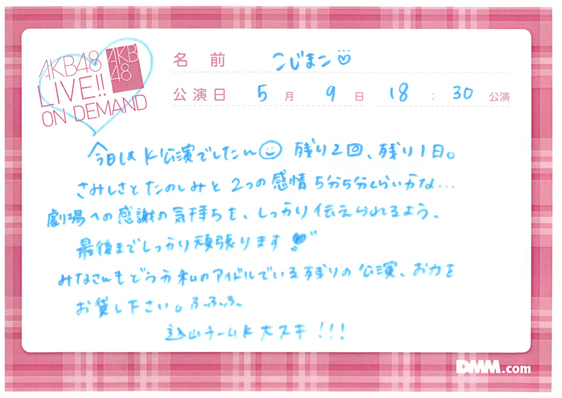 AKB48
LIVE!!
ON DEMAND
AKB
48
名 前 こじまこ
公演日 5 月 9 日 18 : 30 公演
今日はK公演でしたん 残り2回、残り1日。
さみしさとたのしみと2つの感情5分5分くらいかな...
劇場への感謝の気持ちを、しっかり伝えられるよう、
最後までしっかり頑張ります
みなさんもどうか私のアイドルでいる残りの公演、お力を
お貸し下さい。ふふふ
込山チームK大スキ!!!
DMM.com